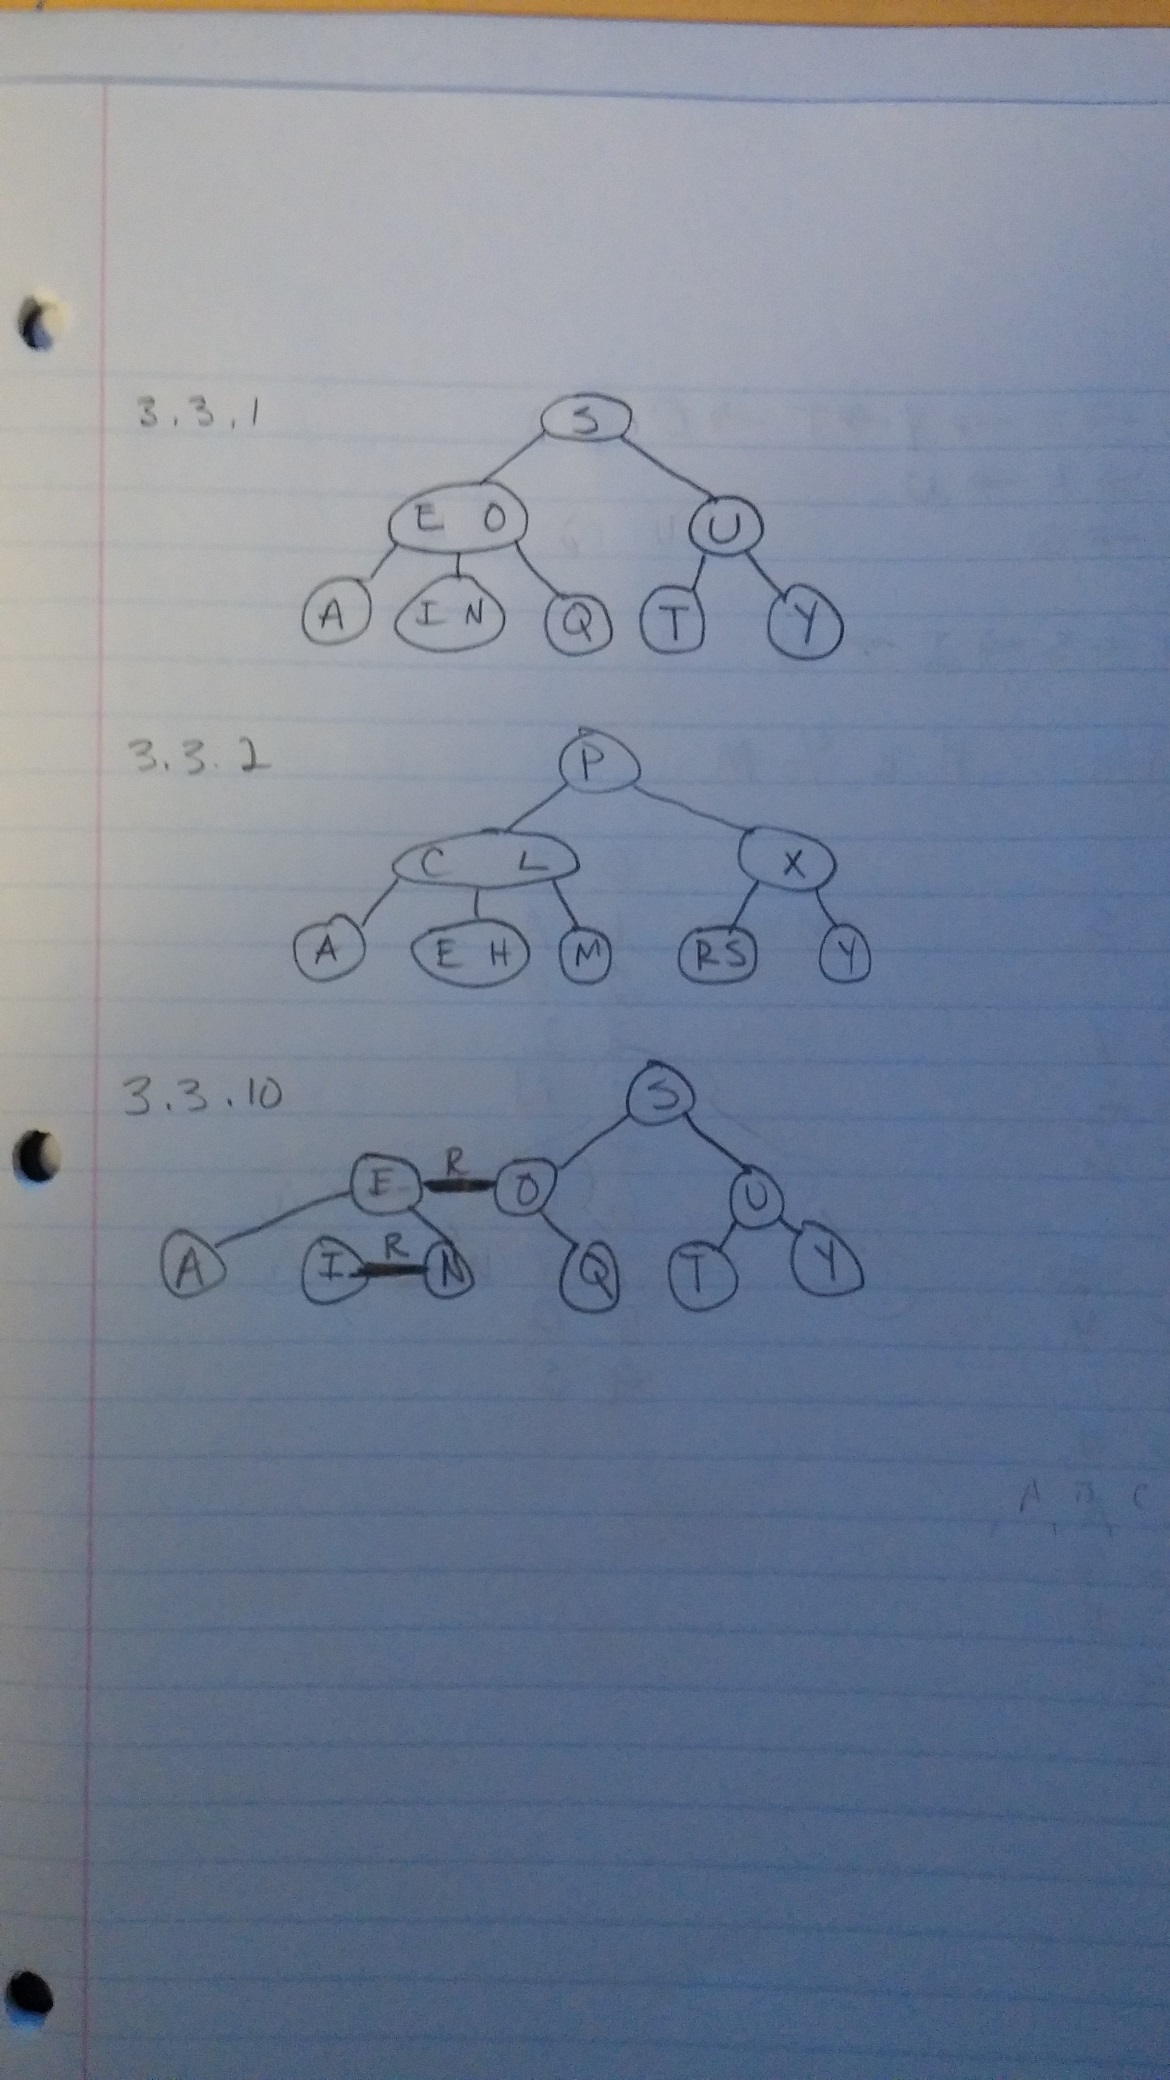 3.3.1 S
E O U
A I N Q T Y
3.3.2 P
C L X
A E H M RS Y
3.3.10 S
E R O U
A I R N Q T Y
A B C